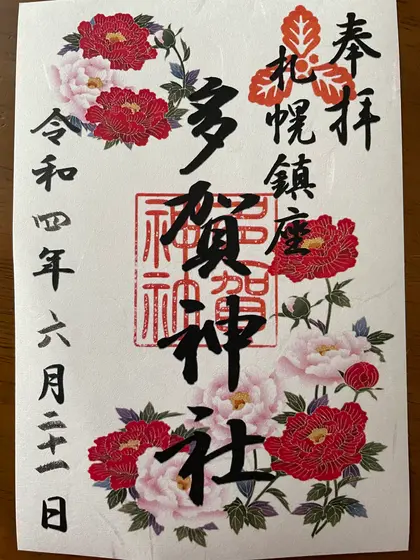 奉拝
札幌鎮座
多賀神社
多賀神社
令和四年六月二十一日